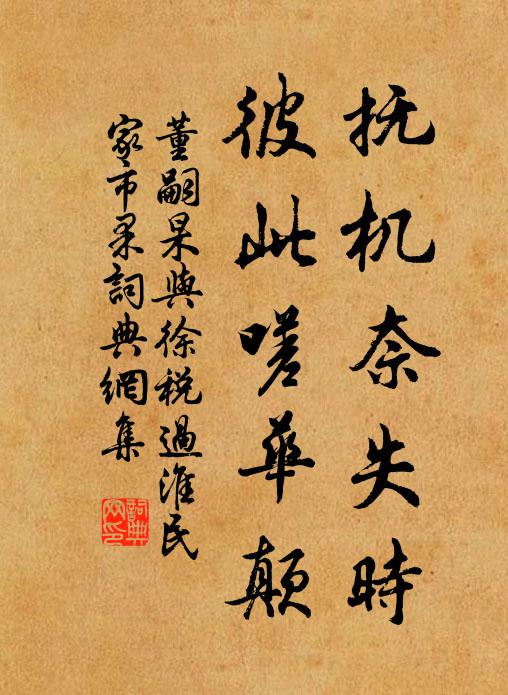 抚机奈失時
彼此嗟華颠
董嗣杲與徐税過淮民
家市果詞典網集
詞典
网印